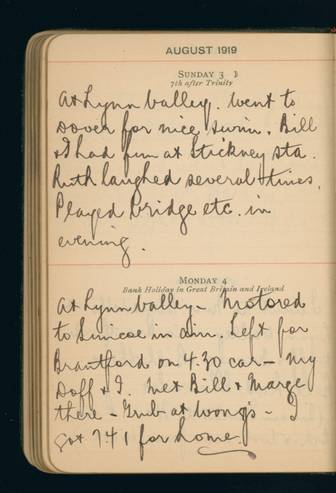 AUGUST 1919
SUNDAY 3 D
7th after Trinity
At Lynn Valley. Went to
Dover for nice swim. Bill
& I had fun at Stickney sta.
Ruth laughed several times.
Played bridge etc. in
evening.
MONDAY 4
Bank Holiday in Great Britain and Ireland
At Lynn Valley – Motored
to Simcoe in a.m. Left for
Brantford on 4.30 car – my
Doff & I. Met Bill & Marge
there – Grub at Wong's – I
got 7.41 for home.